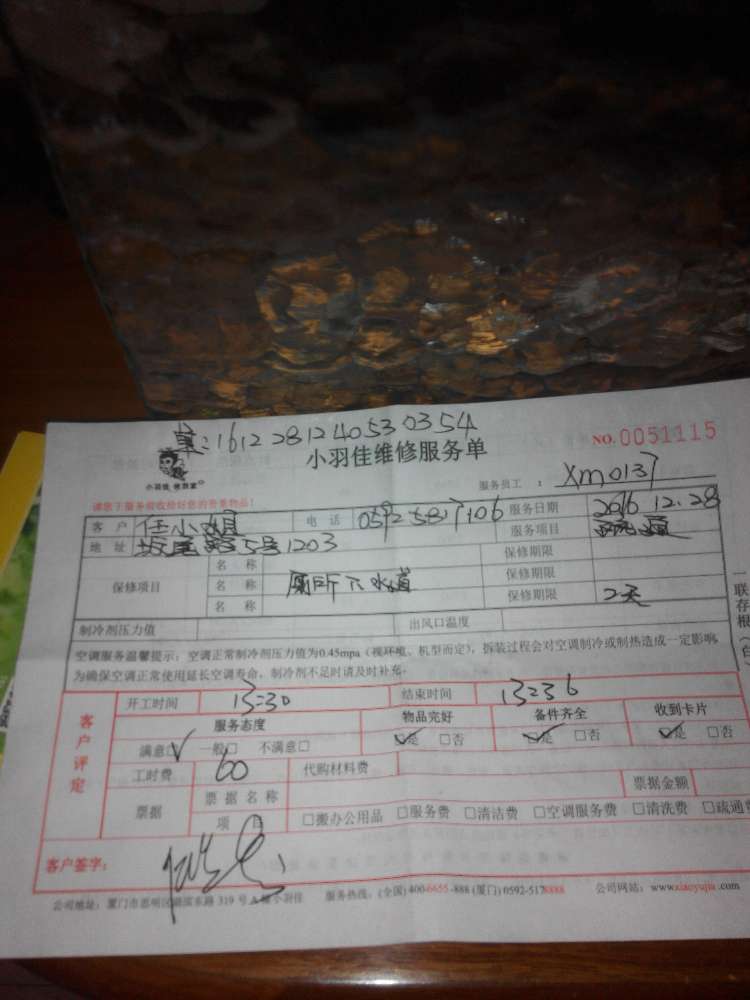 单:161228124053 0354
小羽佳维修服务单 NO.0051115
小羽佳 使到家
服务员工: Xm0137
请您于服务前收拾好您的贵重物品!
客户 任小姐 电话 0592 5817106 服务日期 2016.12.28
地址 坂尾路5号1203 服务项目 疏通
保修项目
名称 保修期限
名称 厕所下水道 保修期限
名称 保修期限 2天
制冷剂压力值 出风口温度
空调服务温馨提示:空调正常制冷剂压力值为0.45mpa(视环境、机型而定),拆装过程会对空调制冷或制热造成一定影响,
为确保空调正常使用延长空调寿命,制冷剂不足时请及时补充。
一联存根
客户评定
开工时间 13:30 结束时间 13:36
服务态度 物品完好 备件齐全 收到卡片
满意□√ 一般□ 不满意□ ☑是 □否 ☑是 □否 ☑是 □否
工时费 60 代购材料费
票据 票据名称 票据金额
项目 □搬办公用品 □服务费 □清洁费 □空调服务费 □清洗费 □疏通
客户签字:
公司地址:厦门市思明区湖滨东路319号A 服务热线:(全国)400-6655-888 (厦门)0592-5178888 公司网站:www.xiaoyujia.com